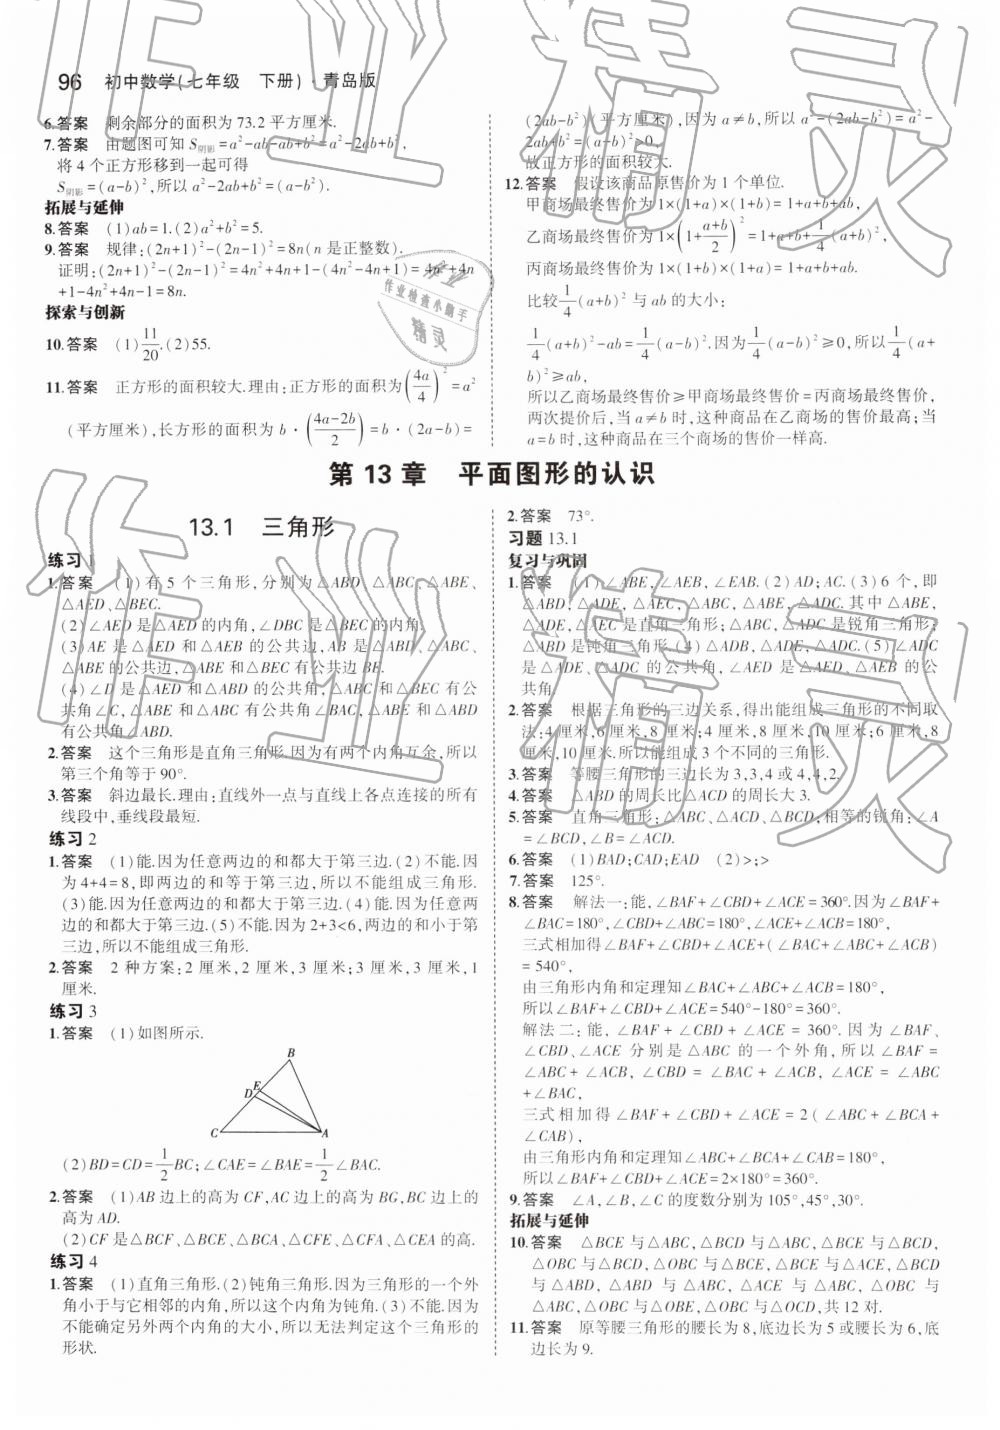 96 初中数学(七年级 下册)·青岛版
6.答案 剩余部分的面积为73.2平方厘米.
7.答案 由题图可知S阴影=a²-ab-ab+b²=a²-2ab+b²,
将4个正方形移到一起可得
S阴影=(a-b)²,所以a²-2ab+b²=(a-b²).
拓展与延伸
8.答案 (1)ab=1.(2)a²+b²=5.
9.答案 规律:(2n+1)²-(2n-1)²=8n(n是正整数).
证明:(2n+1)²-(2n-1)²=4n²+4n+1-(4n²-4n+1)=4n²+4n
+1-4n²+4n-1=8n.
探索与创新
10.答案 (1)11/20.(2)55.
11.答案 正方形的面积较大.理由:正方形的面积为(4a/4)²=a²
(平方厘米),长方形的面积为b·((4a-2b)/2)=b·(2a-b)=
(2ab-b²)(平方厘米),因为a≠b,所以a²-(2ab-b²)=a²-
2ab+b²=(a-b)²>0,
故正方形的面积较大.
12.答案 假设该商品原售价为1个单位.
甲商场最终售价为1×(1+a)×(1+b)=1+a+b+ab,
乙商场最终售价为1×(1+(a+b)/2)²=1+a+b+1/4(a+b)²,
丙商场最终售价为1×(1+b)×(1+a)=1+a+b+ab.
比较1/4(a+b)²与ab的大小:
1/4(a+b)²-ab=1/4(a-b)².因为1/4(a-b)²≥0,所以1/4(a+
b)²≥ab,
所以乙商场最终售价≥甲商场最终售价=丙商场最终售价,
两次提价后,当a≠b时,这种商品在乙商场的售价最高;当
a=b时,这种商品在三个商场的售价一样高.
第13章 平面图形的认识
13.1 三角形
练习1
1.答案 (1)有5个三角形,分别为△ABD、△ABC、△ABE、
△AED、△BEC.
(2)∠AED是△AED的内角,∠DBC是△BEC的内角.
(3)AE是△AED和△AEB的公共边,AB是△ABD、△ABC、
△ABE的公共边,△ABE和△BEC有公共边BE.
(4)∠D是△AED和△ABD的公共角,△ABC和△BEC有公
共角∠C,△ABE和△ABC有公共角∠BAC,△ABE和△ABD
有公共角∠ABD.
2.答案 这个三角形是直角三角形.因为有两个内角互余,所以
第三个角等于90°.
3.答案 斜边最长.理由:直线外一点与直线上各点连接的所有
线段中,垂线段最短.
练习2
1.答案 (1)能.因为任意两边的和都大于第三边.(2)不能.因
为4+4=8,即两边的和等于第三边,所以不能组成三角形.
(3)能.因为任意两边的和都大于第三边.(4)能.因为任意两
边的和都大于第三边.(5)不能.因为2+3<6,两边的和小于第
三边,所以不能组成三角形.
2.答案 2种方案:2厘米,2厘米,3厘米;3厘米,3厘米,1
厘米.
练习3
1.答案 (1)如图所示.
B
E
D
C
A
(2)BD=CD=1/2BC;∠CAE=∠BAE=1/2∠BAC.
2.答案 (1)AB边上的高为CF,AC边上的高为BG,BC边上的
高为AD.
(2)CF是△BCF、△BCE、△BCA、△CFE、△CFA、△CEA的高.
练习4
1.答案 (1)直角三角形.(2)钝角三角形.因为三角形的一个外
角小于与它相邻的内角,所以这个内角为钝角.(3)不能.因为
不能确定另外两个内角的大小,所以无法判定这个三角形的
形状.
2.答案 73°.
习题13.1
复习与巩固
1.答案 (1)∠ABE,∠AEB,∠EAB.(2)AD;AC.(3)6个,即
△ABD,△ADE,△AEC,△ABC,△ABE,△ADC.其中△ABE,
△ADE,△AEC是直角三角形;△ABC,△ADC是锐角三角形;
△ABD是钝角三角形.(4)△ADB,△ADE,△ADC.(5)∠ADC
是△ADE、△ADC的公共角,∠AED是△AED、△AEB的公
共角.
2.答案 根据三角形的三边关系,得出能组成三角形的不同取
法:4厘米,6厘米,8厘米;4厘米,8厘米,10厘米;6厘米,8
厘米,10厘米.所以能组成3个不同的三角形.
3.答案 等腰三角形的三边长为3,3,4或4,4,2.
4.答案 △ABD的周长比△ACD的周长大3.
5.答案 直角三角形:△ABC、△ACD、△BCD;相等的锐角:∠A
=∠BCD,∠B=∠ACD.
6.答案 (1)BAD;CAD;EAD (2)>;>
7.答案 125°.
8.答案 解法一:能,∠BAF+∠CBD+∠ACE=360°.因为∠BAF+
∠BAC=180°,∠CBD+∠ABC=180°,∠ACE+∠ACB=180°,
三式相加得∠BAF+∠CBD+∠ACE+(∠BAC+∠ABC+∠ACB)
=540°,
由三角形内角和定理知∠BAC+∠ABC+∠ACB=180°,
所以∠BAF+∠CBD+∠ACE=540°-180°=360°.
解法二:能,∠BAF+∠CBD+∠ACE=360°.因为∠BAF、
∠CBD、∠ACE分别是△ABC的一个外角,所以∠BAF=
∠ABC+∠ACB,∠CBD=∠BAC+∠ACB,∠ACE=∠ABC
+∠BAC,
三式相加得∠BAF+∠CBD+∠ACE=2(∠ABC+∠BCA+
∠CAB),
由三角形内角和定理知∠ABC+∠BCA+∠CAB=180°,
所以∠BAF+∠CBD+∠ACE=2×180°=360°.
9.答案 ∠A,∠B,∠C的度数分别为105°,45°,30°.
拓展与延伸
10.答案 △BCE与△ABC,△BCD与△ABC,△BCE与△BCD,
△OBC与△BCD,△OBC与△BCE,△BCE与△ACE,△BCD
与△ABD,△ABD与△ABC,△ACE与△ABC,△OBC与
△ABC,△OBC与△OBE,△OBC与△OCD,共12对.
11.答案 原等腰三角形的腰长为8,底边长为5或腰长为6,底
边长为9.
作业精灵
作业精灵
作业
作业检查小助手
精灵